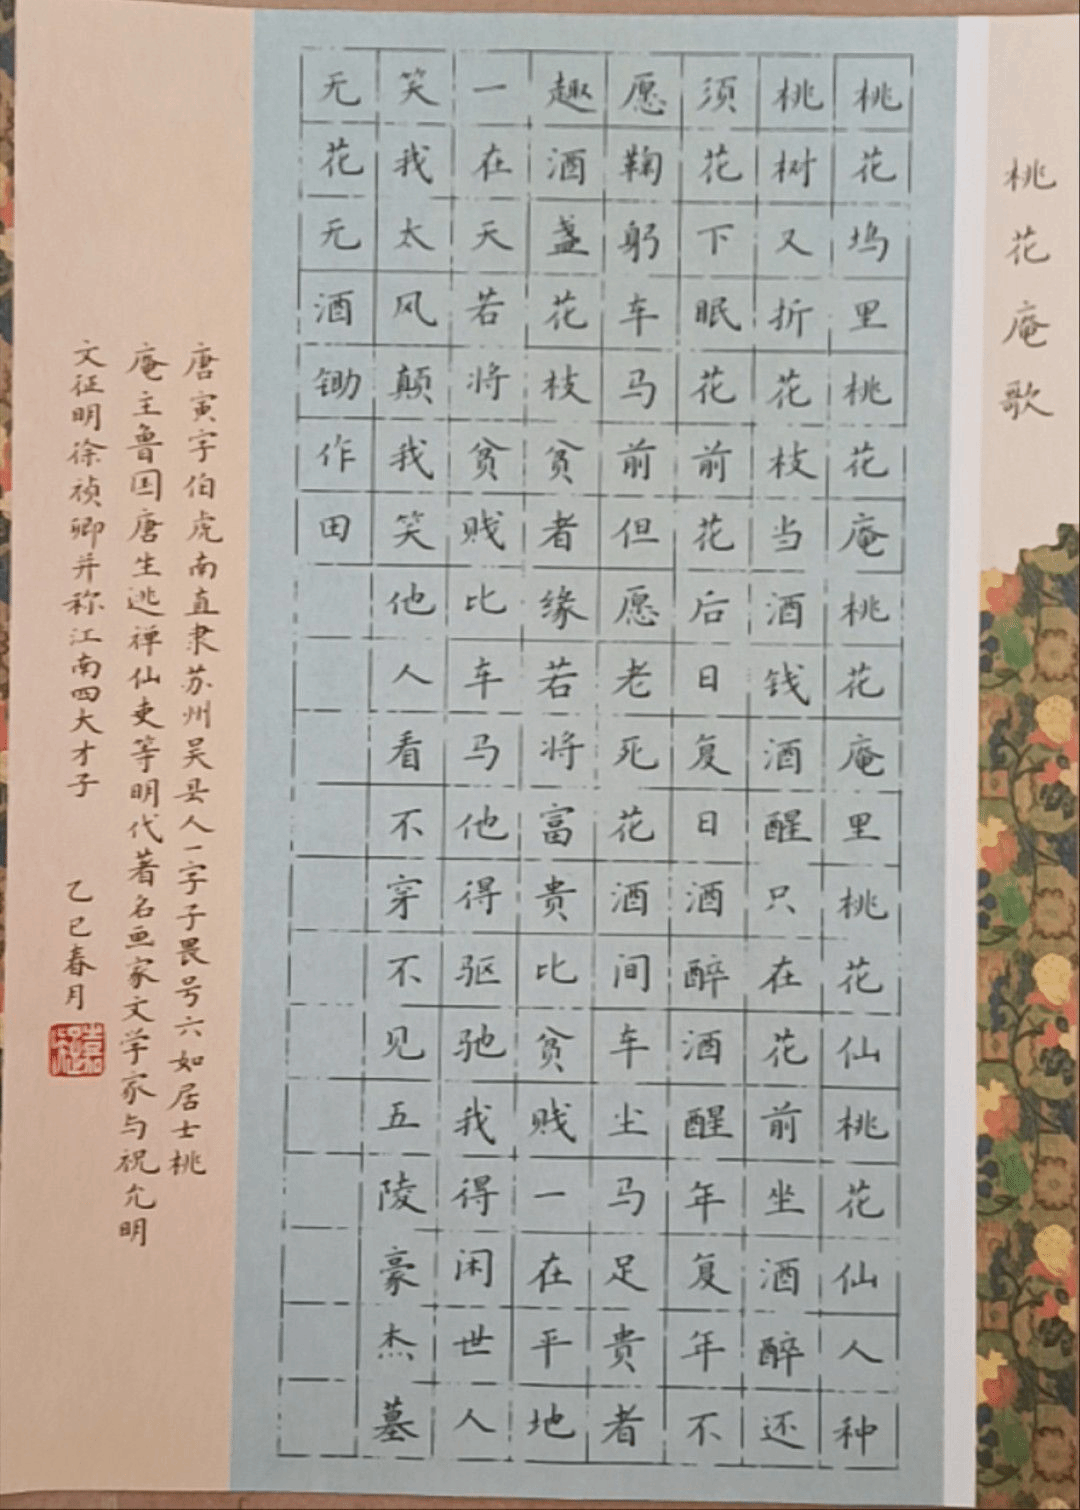 桃花庵歌
桃花坞里桃花庵桃花庵里桃花仙桃花仙人种
桃树又折花枝当酒钱酒醒只在花前坐酒醉还
须花下眠花前花后日复日酒醉酒醒年复年不
愿鞠躬车马前但愿老死花酒间车尘马足贵者
趣酒盏花枝贫者缘若将富贵比贫贱一在平地
一在天若将贫贱比车马他得驱驰我得闲世人
笑我太风颠我笑他人看不穿不见五陵豪杰墓
无花无酒锄作田
唐寅字伯虎南直隶苏州吴县人一字子畏号六如居士桃
庵主鲁国唐生逃禅仙吏等明代著名画家文学家与祝允明
文征明徐祯卿并称江南四大才子 乙巳春月